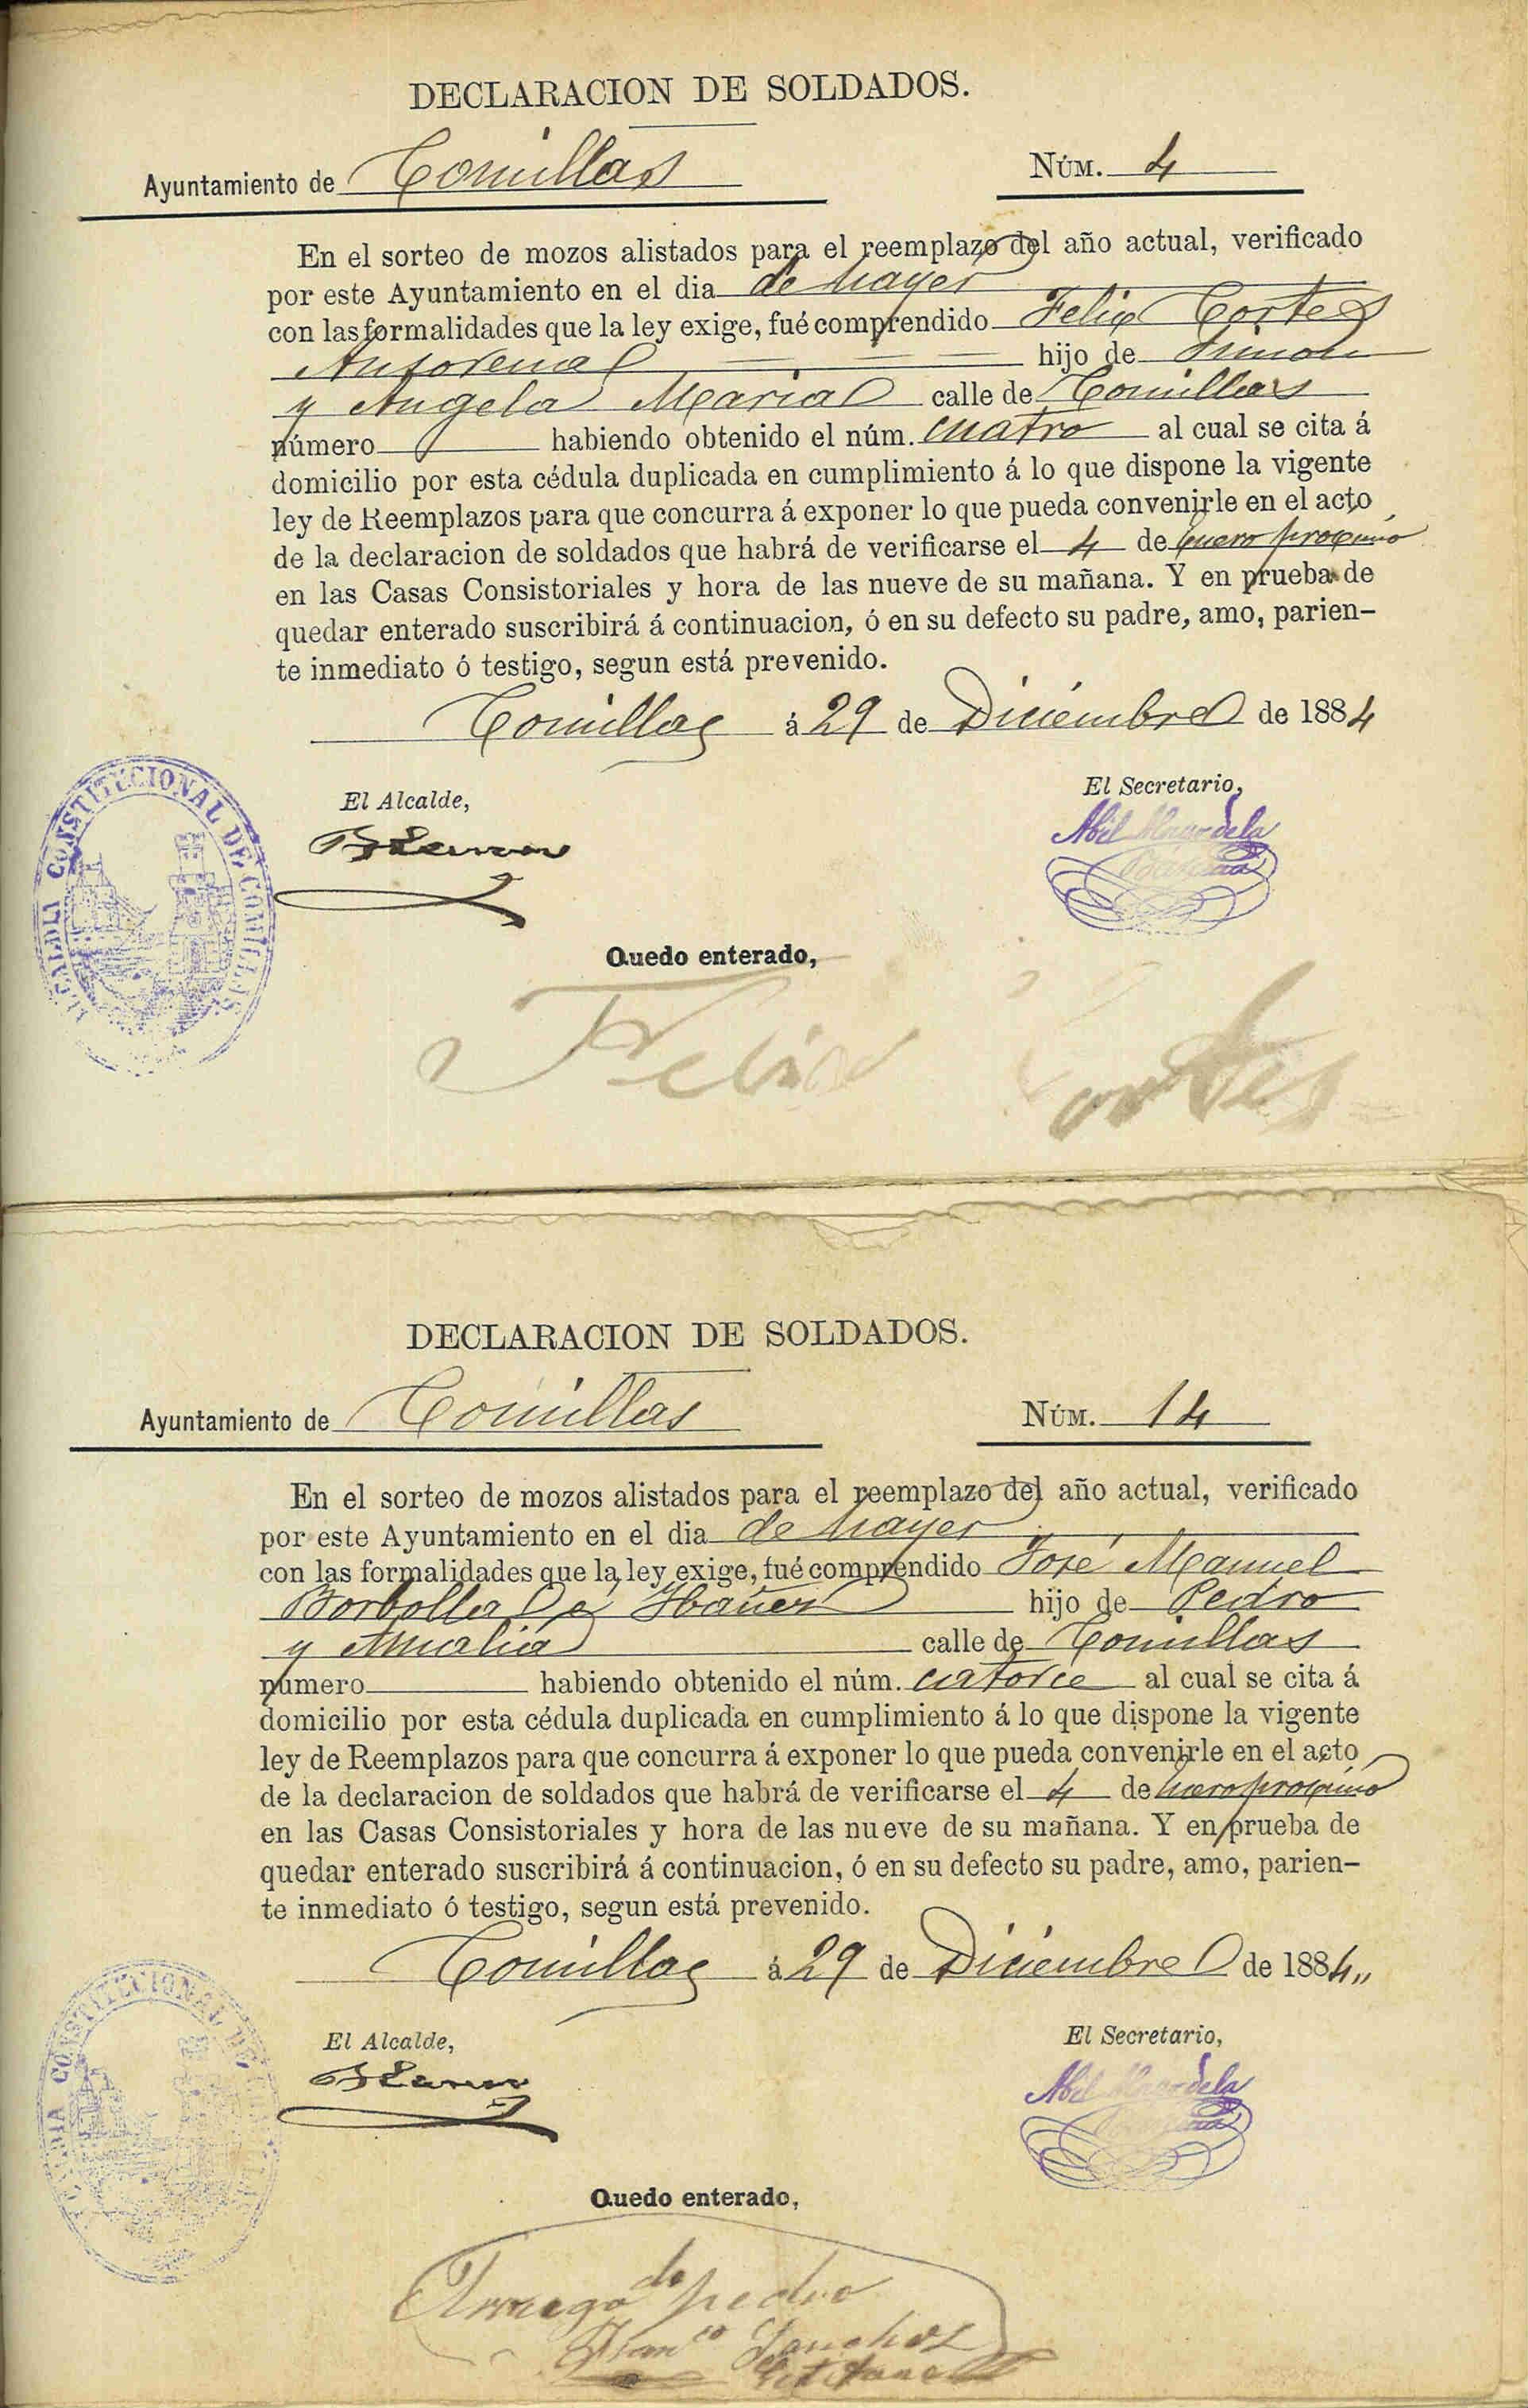 DECLARACION DE SOLDADOS.
Ayuntamiento de Comillas NÚM. 4
En el sorteo de mozos alistados para el reemplazo del año actual, verificado
por este Ayuntamiento en el dia de hayer
con las formalidades que la ley exige, fué comprendido Felix Cortes
hijo de Simon
y Angela Maria calle de Comillas
número habiendo obtenido el núm. cuatro al cual se cita á
domicilio por esta cédula duplicada en cumplimiento á lo que dispone la vigente
ley de Reemplazos para que concurra á exponer lo que pueda convenirle en el acto
de la declaracion de soldados que habrá de verificarse el 4 de Enero proximo
en las Casas Consistoriales y hora de las nueve de su mañana. Y en prueba de
quedar enterado suscribirá á continuacion, ó en su defecto su padre, amo, parien-
te inmediato ó testigo, segun está prevenido.
Comillas á 29 de Diciembre de 1884
El Alcalde, El Secretario,
ALCALDIA CONSTITUCIONAL DE COMILLAS
Quedo enterado,
Felix Cortes
DECLARACION DE SOLDADOS.
Ayuntamiento de Comillas NÚM. 14
En el sorteo de mozos alistados para el reemplazo del año actual, verificado
por este Ayuntamiento en el dia de hayer
con las formalidades que la ley exige, fué comprendido José Manuel
Borbolla é Ibañez hijo de Pedro
y Amalia calle de Comillas
número habiendo obtenido el núm. catorce al cual se cita á
domicilio por esta cédula duplicada en cumplimiento á lo que dispone la vigente
ley de Reemplazos para que concurra á exponer lo que pueda convenirle en el acto
de la declaracion de soldados que habrá de verificarse el 4 de Enero proximo
en las Casas Consistoriales y hora de las nueve de su mañana. Y en prueba de
quedar enterado suscribirá á continuacion, ó en su defecto su padre, amo, parien-
te inmediato ó testigo, segun está prevenido.
Comillas á 29 de Diciembre de 1884
El Alcalde, El Secretario,
ALCALDIA CONSTITUCIONAL DE COMILLAS
Quedo enterado,
Arruego de pedro
Fran co Sanchez